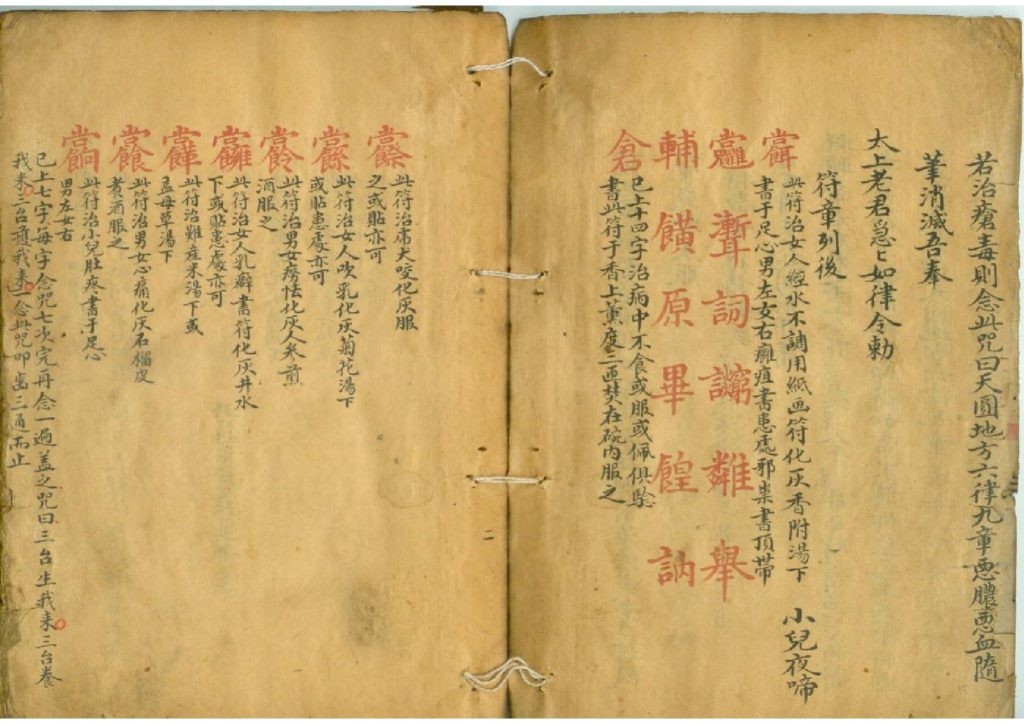 若治瘡毒則念此咒曰天圓地方六律九章惡膿惡血隨
筆消滅吾奉
太上老君急〻如律令勅
符章列後
此符治女人經水不調用紙画符化灰香附湯下 小兒夜啼
書于足心男左女右癰疽書患處邪祟書頂帶
詞 難 舉
輔 原 畢 餭 訥
倉
已上十四字治病中不食或服或佩俱騐
書此符于香上薰度三匝焚在碗内服之
二
此符治虎犬咬化灰服
之或貼亦可
此符治女人吹乳化灰菊花湯下
或貼患處亦可
此符治男女痰怯化灰人參煎
酒服之
此符治女人乳癖書符化灰井水
下或貼患處亦可
此符治難產米湯下或
益母草湯下
此符治男女心痛化灰石榴皮
煮酒服之
此符治小兒肚疼書于足心
男左女右
已上七字每字念咒七次完再念一遍盖之咒曰三台生我来三台養
我来三台護我来一念此咒叩齒三通而止